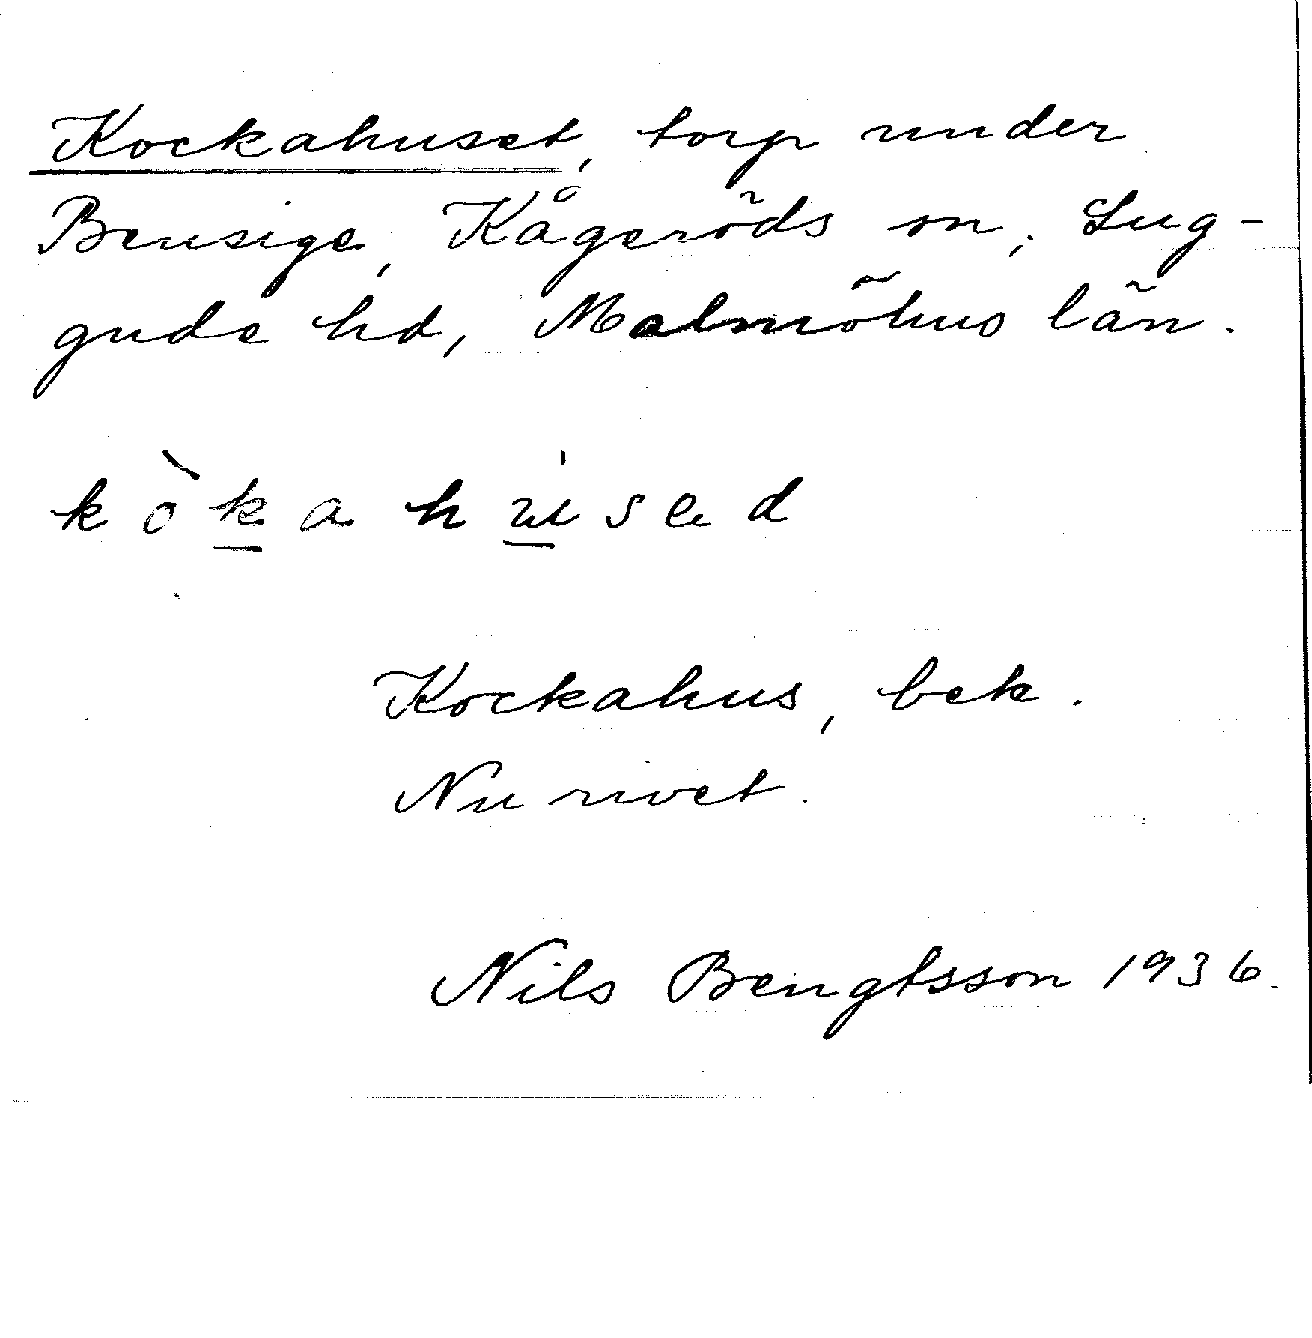 Kockahuset, torp under
Bensige, Kågeröds sn, Lug-
gude hd, Malmöhus län.
kòkahúsed
Kockahus, bek.
Nu rivet.
Nils Bengtsson 1936.